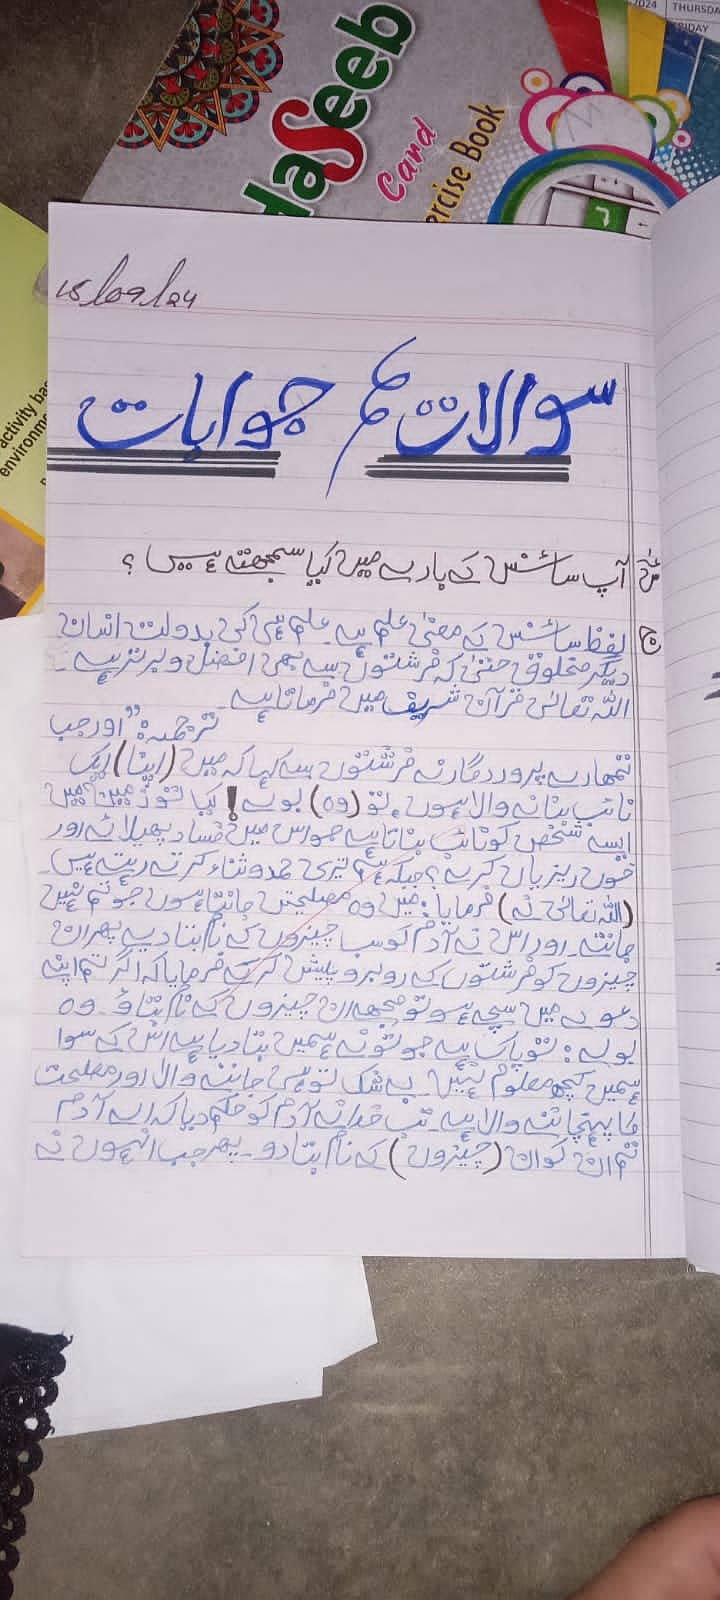 2024 THURSDA
FRIDAY
Haseeb
Card
ercise Book
activity bas
environm
15/09/24
سوالات جوابات
آپ سائنس کے بارے میں کیا سمجھتے ہیں ؟
ج لفظ سائنس کے معنیٰ علم ہے۔ علم ہی کی بدولت انسان
دیگر مخلوق حتیٰ کہ فرشتوں سے بھی افضل و برتر ہے۔
اللہ تعالیٰ قرآن شریف میں فرماتا ہے۔
ترجمہ: "اور جب
تمھارے پروردگار نے فرشتوں سے کہا کہ میں (اپنا) ایک
نائب بنانے والا ہوں۔ تو (وہ) بولے! کیا تو زمین میں
ایسے شخص کو نائب بناتا ہے جو اس میں فساد پھیلائے اور
خون ریزیاں کرے؟ جبکہ ہم تیری حمد و ثناء کرتے رہتے ہیں۔
(اللہ تعالیٰ نے) فرمایا: میں وہ مصلحتیں جانتا ہوں جو تم نہیں
جانتے۔ اور اس نے آدم کو سب چیزوں کے نام بتا دیے پھر ان
چیزوں کو فرشتوں کے روبرو پیش کر کے فرمایا کہ اگر تم اپنے
دعوے میں سچے ہو تو مجھے ان چیزوں کے نام بتاؤ۔ وہ
بولے: تو پاک ہے جو تو نے ہمیں بتا دیا ہے اس کے سوا
ہمیں کچھ معلوم نہیں بے شک تو ہی جاننے والا اور مصلحت
کا پہچاننے والا ہے۔ تب خدا نے آدم کو حکم دیا کہ اے آدم
تم ان کو ان (چیزوں) کے نام بتا دو۔ پھر جب انہوں نے